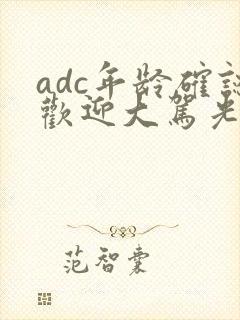 adc年龄確認
歡迎大駕光
范智橐